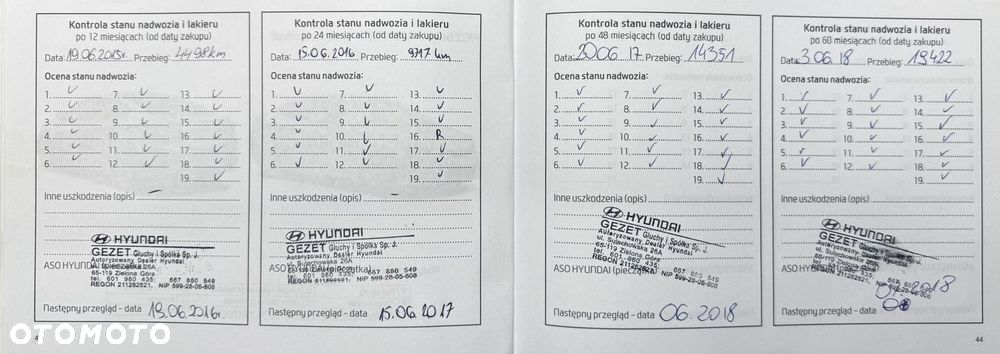 Kontrola stanu nadwozia i lakieru
po 12 miesiącach (od daty zakupu)
Data: 19.06.2015r. Przebieg: 4498km
Ocena stanu nadwozia:
1. ✓ 7. ✓ 13. ✓
2. ✓ 8. ✓ 14. ✓
3. ✓ 9. ✓ 15. ✓
4. ✓ 10. ✓ 16. ✓
5. ✓ 11. ✓ 17. ✓
6. ✓ 12. ✓ 18. ✓
19. ✓
Inne uszkodzenia (opis) –
HYUNDAI
GEZET Głuchy i Spółka Sp. J.
Autoryzowany Dealer Hyundai
ul. Sulechowska 26A
ASO HYUNDAI (pieczątka)
65-119 Zielona Góra
tel. 601 960 435, 667 860 549
REGON 211262521, NIP 599-28-05-608
Następny przegląd – data 19.06.2016r.
Kontrola stanu nadwozia i lakieru
po 24 miesiącach (od daty zakupu)
Data: 15.06.2016 Przebieg: 9717 km
Ocena stanu nadwozia:
1. ✓ 7. ✓ 13. ✓
2. ✓ 8. ✓ 14. ✓
3. ✓ 9. ✓ 15. ✓
4. ✓ 10. ✓ 16. R
5. ✓ 11. ✓ 17. ✓
6. ✓ 12. ✓ 18. ✓
19. ✓
Inne uszkodzenia (opis) –
HYUNDAI
GEZET Głuchy i Spółka Sp. J.
Autoryzowany Dealer Hyundai
ul. Sulechowska 26A
ASO HYUNDAI (pieczątka)
65-119 Zielona Góra
tel. 601 960 435, 667 860 549
REGON 211262521, NIP 599-28-05-608
Następny przegląd – data 15.06.2017
Kontrola stanu nadwozia i lakieru
po 48 miesiącach (od daty zakupu)
Data: 20.06.17 Przebieg: 14351
Ocena stanu nadwozia:
1. ✓ 7. ✓ 13. ✓
2. ✓ 8. ✓ 14. ✓
3. ✓ 9. ✓ 15. ✓
4. ✓ 10. ✓ 16. ✓
5. ✓ 11. ✓ 17. ✓
6. ✓ 12. ✓ 18. ✓
19. ✓
Inne uszkodzenia (opis)
HYUNDAI
GEZET Głuchy i Spółka Sp. J.
Autoryzowany Dealer Hyundai
ul. Sulechowska 26A
65-119 Zielona Góra
ASO HYUNDAI (pieczątka)
tel. 601 960 435, 667 860 549
REGON 211262521, NIP 599-28-05-608
Następny przegląd – data 06.2018
Kontrola stanu nadwozia i lakieru
po 60 miesiącach (od daty zakupu)
Data: 3.06.18 Przebieg: 19422
Ocena stanu nadwozia:
1. ✓ 7. ✓ 13. ✓
2. ✓ 8. ✓ 14. ✓
3. ✓ 9. ✓ 15. ✓
4. ✓ 10. ✓ 16. ✓
5. ✓ 11. ✓ 17. ✓
6. ✓ 12. ✓ 18. ✓
19. ✓
Inne uszkodzenia (opis)
HYUNDAI
GEZET Głuchy i Spółka Sp. J.
Autoryzowany Dealer Hyundai
ul. Sulechowska 26A
65-119 Zielona Góra
ASO HYUNDAI
REGON 211262521, NIP 599-28-05-608
2018
Następny przegląd – data
OTOMOTO
44